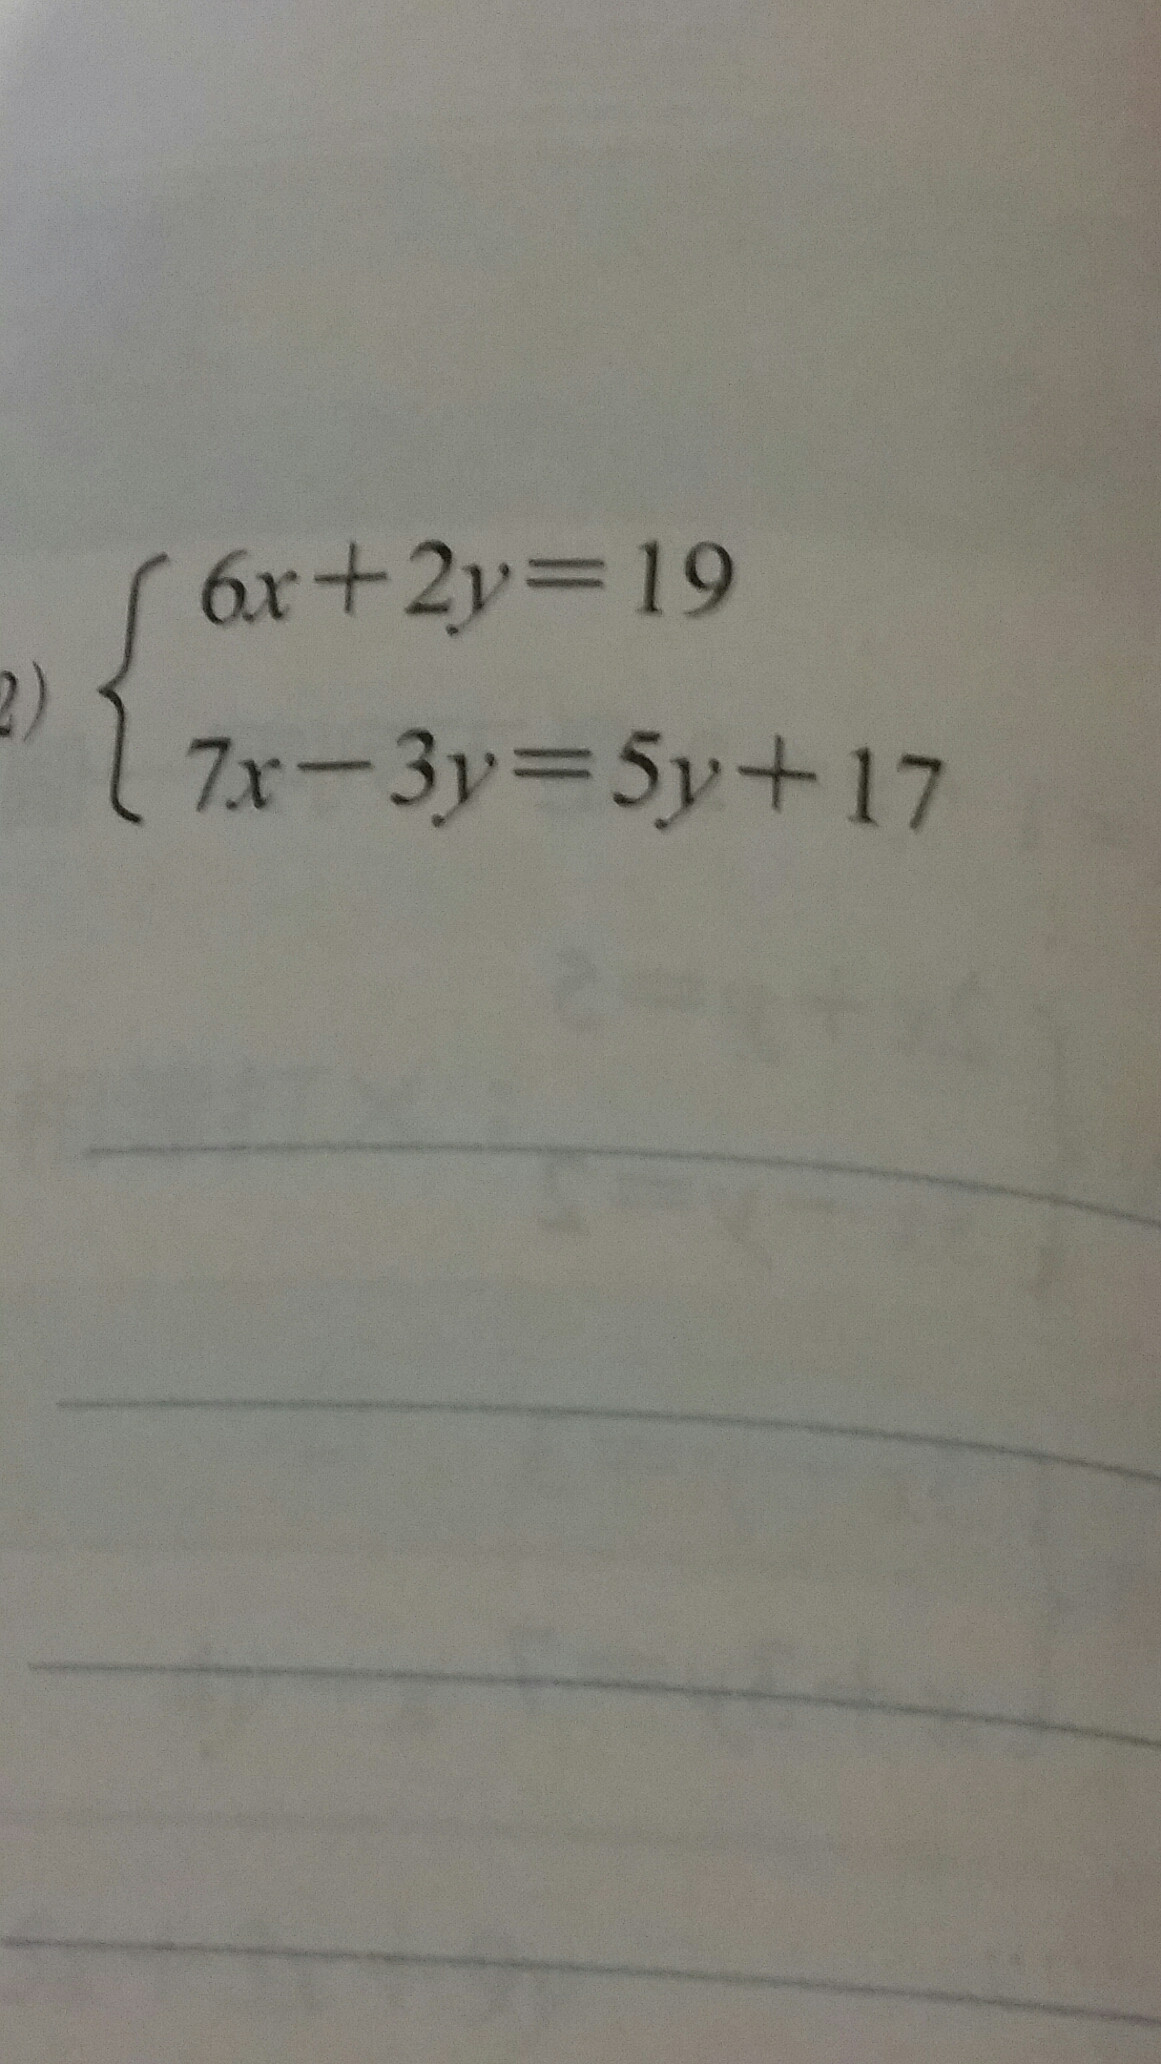 2) { 6x+2y=19
7x−3y=5y+17